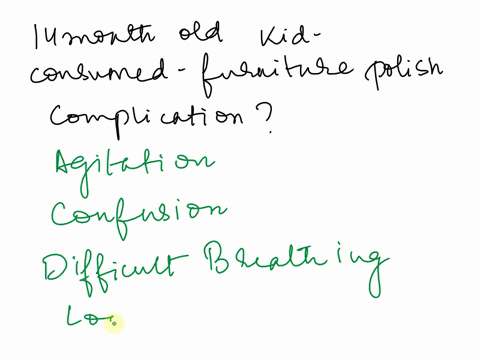 14 month old kid-
consumed - furniture polish
Complication?
Agitation
Confusion
Difficult Breathing
Lo